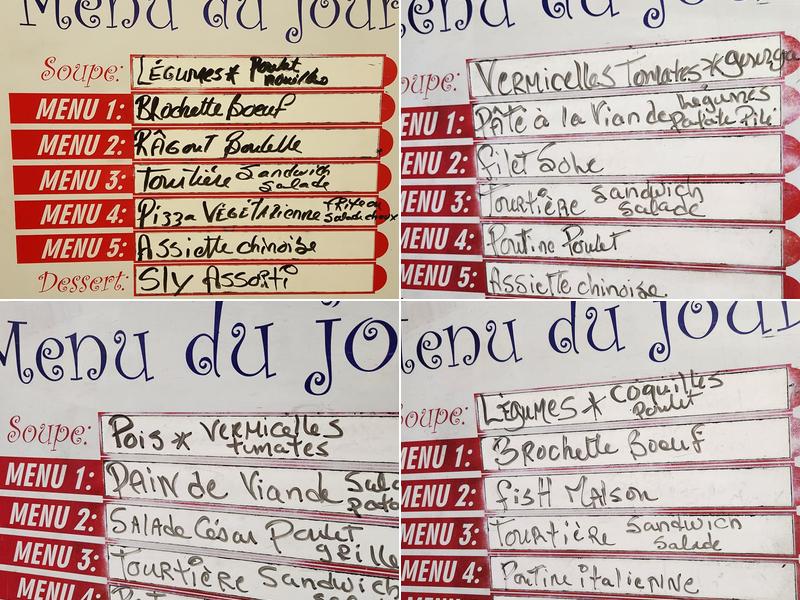 Menu du jour
Soupe: LÉGUMES * Poulet nouilles
MENU 1: BROchette Boeuf
MENU 2: RÂGoût Boulette
MENU 3: Tourtière Sandwich Salade
MENU 4: Pizza VÉGÉTARienne frite ou Salade choux
MENU 5: Assiette chinoise
Dessert: Sly Assorti
Menu du jour
oupe: VERMicelles Tomates *
ENU 1: PÂTÉ à la Viande Légumes Patate Pilé
ENU 2: filet Sole
MENU 3: TOURTIÈRE Sandwich Salade
MENU 4: Poutine Poulet
MENU 5: Assiette chinoise
Menu du jo
Soupe: Pois * VERMicelles tumates
MENU 1: PAIN de Viande Sala
MENU 2: SALAde César Poulet grille
MENU 3: TOURTIÈRE Sandwich
MENU 4:
enu du jou
oupe: LÉGUMES * COQuilles Poulet
ENU 1: BROchette Boeuf
MENU 2: fisH MAison
MENU 3: TOURTIÈRE Sandwich Salade
MENU 4: Poutine itALieNNe